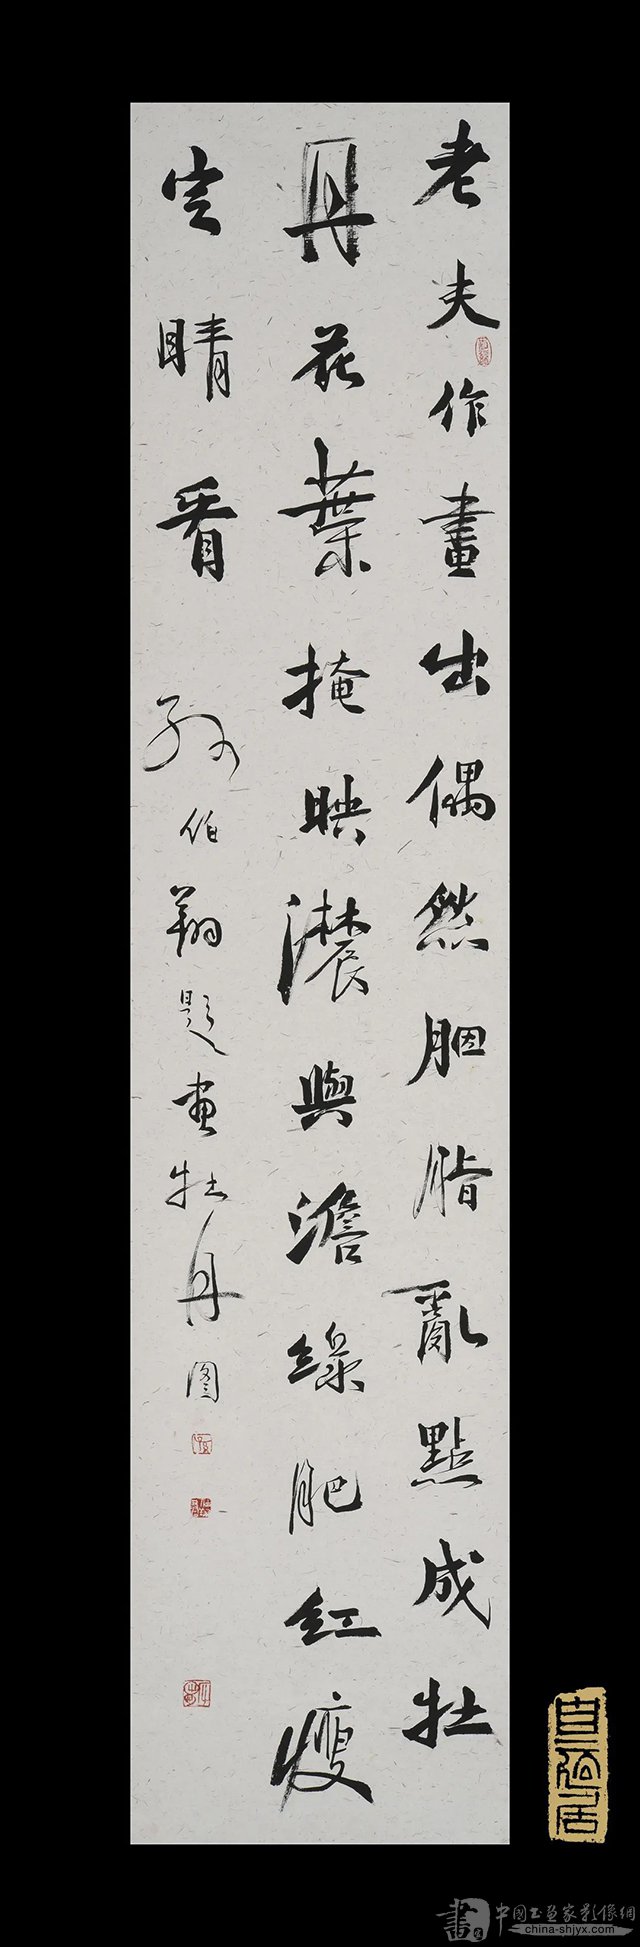 老夫作畫出偶然胭脂亂點成牡
丹花葉掩映濃與澹綠肥紅瘦
定睛看 孙伯翔題画牡丹图
書
中国书画家影像網
www.china-shjyx.com